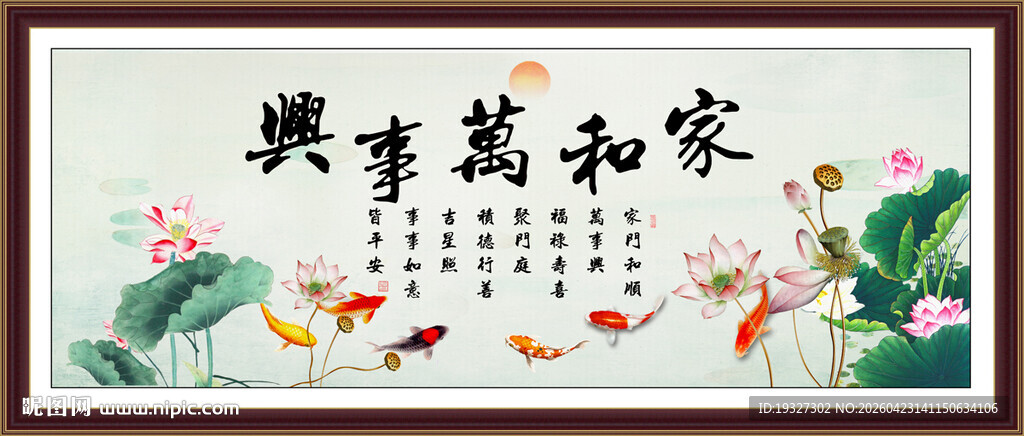 家和萬事興
家門和順
萬事興
福祿壽喜
聚門庭
積德行善
吉星照
事事如意
皆平安
昵图网 www.nipic.com
ID:19327302 NO:20260423141150634106